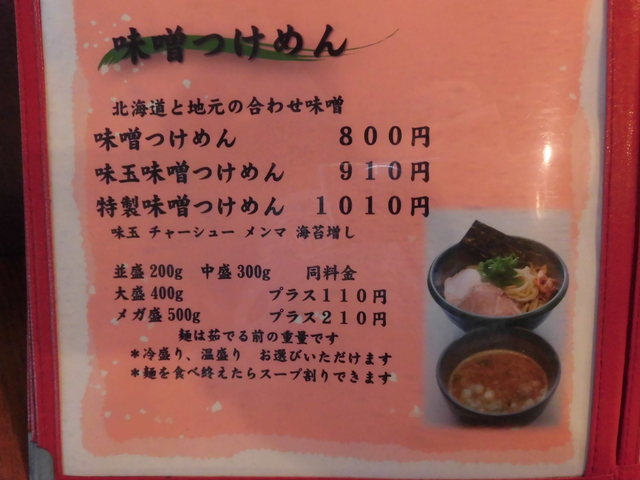 味噌つけめん
北海道と地元の合わせ味噌
味噌つけめん 800円
味玉味噌つけめん 910円
特製味噌つけめん 1010円
味玉 チャーシュー メンマ 海苔増し
並盛200g 中盛300g 同料金
大盛400g プラス110円
メガ盛500g プラス210円
麺は茹でる前の重量です
*冷盛り、温盛り お選びいただけます
*麺を食べ終えたらスープ割りできます